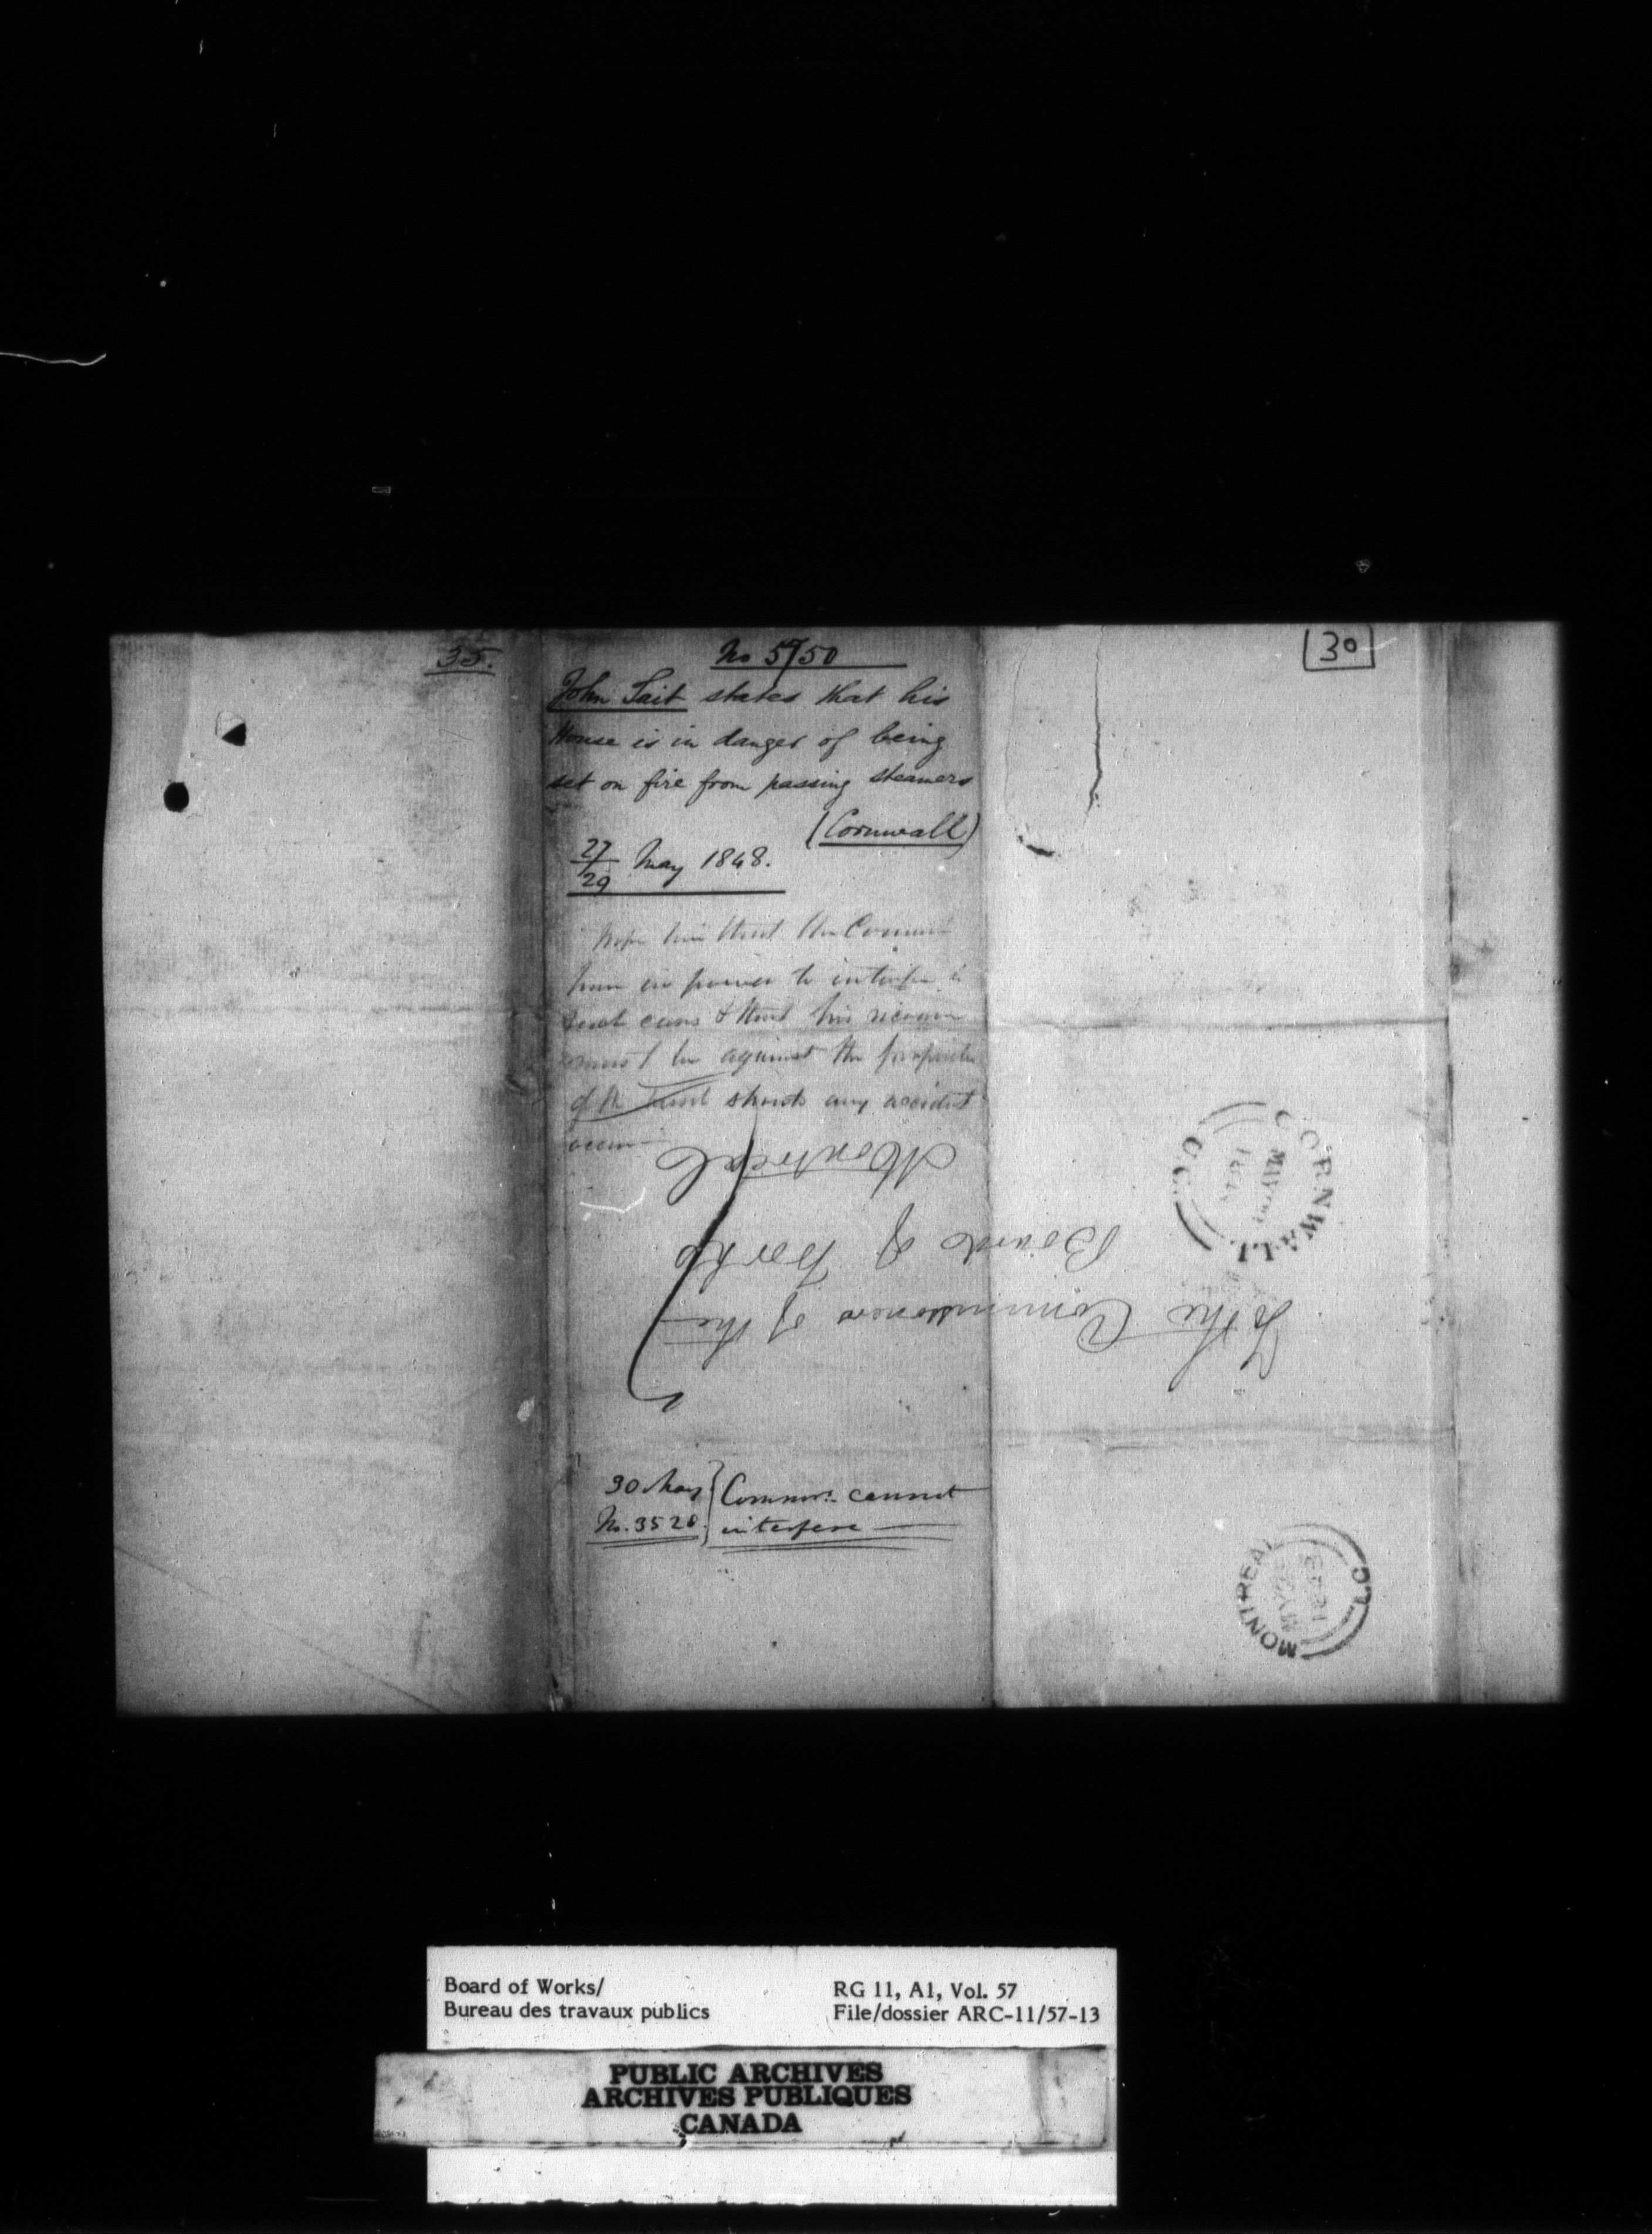 35.
No 5750
John Tait states that his
House is in danger of being
set on fire from passing steamers
(Cornwall)
27/29 May 1848.
him that the
power to
such cases & that his
must be against the
of the should any accident
occur
30 May } Commrs. cannot
No. 3520. } interfere
30
To the Commissioners of the
Board of Works
Montreal
CORNWALL
U.C.
MONTREAL
MY
1848
L.C.
Board of Works/
Bureau des travaux publics
RG 11, A1, Vol. 57
File/dossier ARC-11/57-13
PUBLIC ARCHIVES
ARCHIVES PUBLIQUES
CANADA